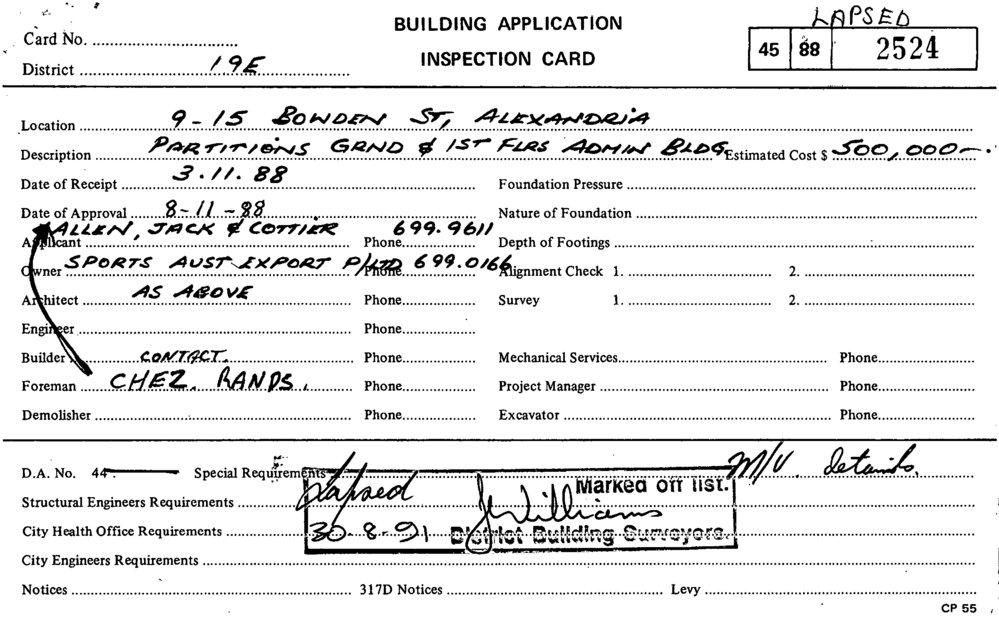 BUILDING APPLICATION
INSPECTION CARD
LAPSED
Card No.
45 88 2524
District 19E
Location 9-15 BOWDEN ST, ALEXANDRIA
Description PARTITIONS GRND & 1ST FLRS ADMIN BLDG Estimated Cost $ 500,000-.
Date of Receipt 3.11.88 Foundation Pressure
Date of Approval 8-11-88 Nature of Foundation
Applicant ALLEN, JACK & COTTIER Phone 699.9611 Depth of Footings
Owner SPORTS AUST EXPORT P/LTD Phone 699.0166 Alignment Check 1. 2.
Architect AS ABOVE Phone Survey 1. 2.
Engineer Phone
Builder CONTACT. Phone Mechanical Services Phone
Foreman CHEZ. RANDS. Phone Project Manager Phone
Demolisher Phone Excavator Phone
D.A. No. 44 Special Requirements M/V details.
Structural Engineers Requirements Lapsed Marked off list.
City Health Office Requirements 30.8.91 JWilliams District Building Surveyors.
City Engineers Requirements
Notices 317D Notices Levy
CP 55